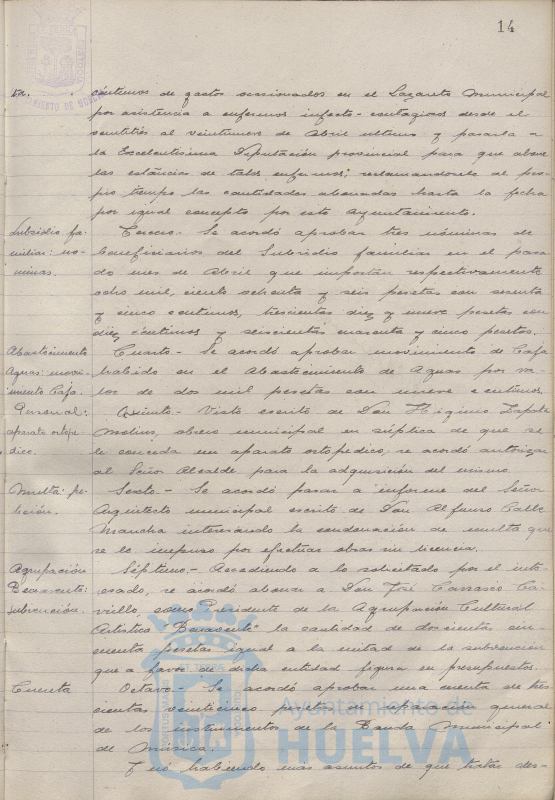 14
ta.
céntimos de gastos ocasionados en el Lazareto Municipal
por asistencia a enfermos infecto-contagiosos desde el
veintitrés al veintinueve de Abril último y pasarla a
la Excelentísima Diputación provincial para que abone
las estancias de tales enfermos; reclamandosele al pro-
pio tiempo las cantidades abonadas hasta la fecha
por igual concepto por este Ayuntamiento.
Subsidio fa-
miliar: nó-
minas.
Tercero.- Se acordó aprobar tres nóminas de
beneficiarios del Subsidio familiar en el pasa-
do mes de Abril que importan respectivamente
ocho mil, ciento ochenta y seis pesetas con sesenta
y cinco centimos, trescientas diez y nueve pesetas con
diez céntimos y seiscientas cuarenta y cinco pesetas.
Abastecimiento
Aguas: movi-
miento Caja.
Cuarto.- Se acordó aprobar movimiento de Caja
habido en el Abastecimiento de Aguas por va-
lor de dos mil pesetas con nueve centimos.
Personal:
aparato ortopé-
dico.
Quinto.- Visto escrito de Don Higinio Zapata
Molina, obrero municipal en súplica de que se
le conceda un aparato ortopédico, se acordó autorizar
al Señor Alcalde para la adquisición del mismo.
Multa: pe-
tición.
Sexto.- Se acordó pasar a informe del Señor
Arquitecto municipal escrito de Don Alfonso Calle
Mancha interesando la condonación de multa que
se le impuso por efectuar obras sin licencia.
Agrupación
Benavente:
subvención.
Séptimo.- Accediendo a lo solicitado por el inte-
resado, se acordó abonar a Don José Carrasco Ca-
rrillo, como Presidente de la Agrupación Cultural
Artística "Benavente" la cantidad de doscientas cin-
cuenta pesetas igual a la mitad de la subvención
que a favor de dicha entidad figura en presupuestos.
Cuenta
Octavo.- Se acordó aprobar una cuenta de tres-
cientas veinticinco pesetas de reparación general
de los instrumentos de la Banda Municipal
de Música.
Y nó habiendo más asuntos de que tratar des-
Ayuntamiento de
HUELVA